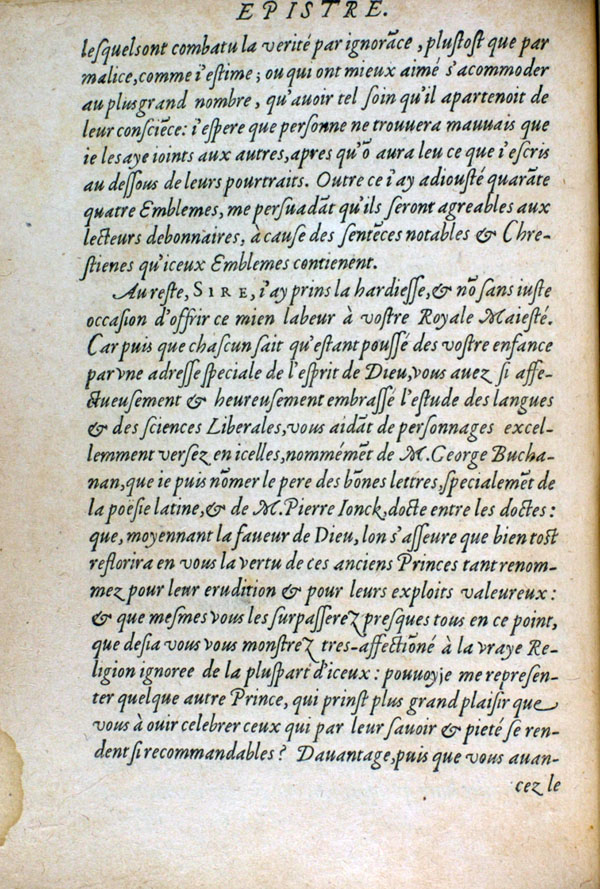 EPISTRE.
lesquelsont combatu la verité par ignorãce, plustost que par
malice, comme i'estime; ou qui ont mieux aimé s'acommoder
au plusgrand nombre, qu'auoir tel soin qu'il apartenoit de
leur consciẽce: i'espere que personne ne trouuera mauuais que
ie les aye ioints aux autres, apres qu'õ aura leu ce que i'escris
au dessous de leurs pourtraits. Outre ce i'ay adiousté quarãte
quatre Emblemes, me persuadãt qu'ils seront agreables aux
lecteurs debonnaires, à cause des sentẽces notables & Chre-
stienes qu'iceux Emblemes contienẽnt.
Au reste, SIRE, i'ay prins la hardiesse, & nõ sans iuste
occasion d'offrir ce mien labeur à vostre Royale Maiesté.
Car puis que chascun sait qu'estant poussé des vostre enfance
par vne adresse speciale de l'esprit de Dieu, vous auez si affe-
ctueusement & heureusement embrassé l'estude des langues
& des sciences Liberales, vous aidãt de personnages excel-
lemment versez en icelles, nommémẽt de M. George Bucha-
nan, que ie puis nõmer le pere des bõnes lettres, specialemẽt de
la poësie latine, & de M. Pierre Ionck, docte entre les doctes:
que, moyennant la faueur de Dieu, lon s'asseure que bien tost
reflorira en vous la vertu de ces anciens Princes tant renom-
mez pour leur erudition & pour leurs exploits valeureux:
& que mesmes vous les surpasserez presques tous en ce point,
que desia vous vous monstrez tres-affectiõné à la vraye Re-
ligion ignoree de la pluspart d'iceux: pouuoyie me represen-
ter quelque autre Prince, qui prinst plus grand plaisir que
vous à ouir celebrer ceux qui par leur sauoir & pieté se ren-
dent si recommandables? Dauantage, puis que vous auan-
cez le